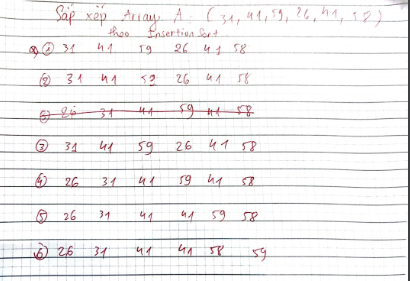 Sắp xếp Array A = (31, 41, 59, 26, 41, 58)
theo Insertion Sort
① 31 41 59 26 41 58
② 31 41 59 26 41 58
③ 26 31 41 59 41 58
③ 31 41 59 26 41 58
④ 26 31 41 59 41 58
⑤ 26 31 41 41 59 58
⑥ 26 31 41 41 58 59